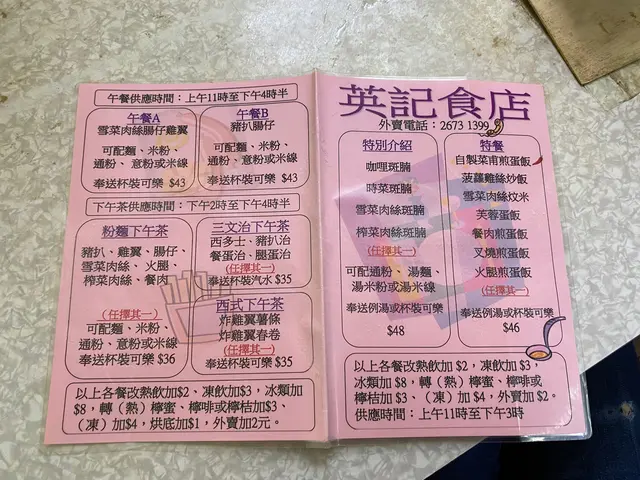 午餐供應時間：上午11時至下午4時半
午餐A
雪菜肉絲腸仔雞翼
可配麵、米粉、
通粉、意粉或米線
奉送杯裝可樂 $43
午餐B
豬扒腸仔
可配麵、米粉、
通粉、意粉或米線
奉送杯裝可樂 $43
下午茶供應時間：下午2時至下午4時半
粉麵下午茶
豬扒、雞翼、腸仔、
雪菜肉絲、火腿、
榨菜肉絲、餐肉
(任擇其一)
可配麵、米粉、
通粉、意粉或米線
奉送杯裝可樂 $36
三文治下午茶
西多士、豬扒治
餐蛋治、腿蛋治
(任擇其一)
奉送杯裝汽水 $35
西式下午茶
炸雞翼薯條
炸雞翼春卷
(任擇其一)
奉送杯裝可樂 $35
以上各餐改熱飲加$2、凍飲加$3，冰類加
$8，轉（熱）檸蜜、檸啡或檸桔加$3、
（凍）加$4，烘底加$1，外賣加2元。
英記食店
外賣電話：2673 1399
特別介紹
咖哩斑腩
時菜斑腩
雪菜肉絲斑腩
榨菜肉絲斑腩
(任擇其一)
可配通粉、湯麵、
湯米粉或湯米線
奉送例湯或杯裝可樂
$48
特餐
自製菜甫煎蛋飯
菠蘿雞絲炒飯
雪菜肉絲炆米
芙蓉蛋飯
餐肉煎蛋飯
叉燒煎蛋飯
火腿煎蛋飯
(任擇其一)
奉送例湯或杯裝可樂
$46
以上各餐改熱飲加 $2，凍飲加 $3，
冰類加 $8，轉（熱）檸蜜、檸啡或
檸桔加 $3、（凍）加 $4，外賣加 $2。
供應時間：上午11時至下午3時